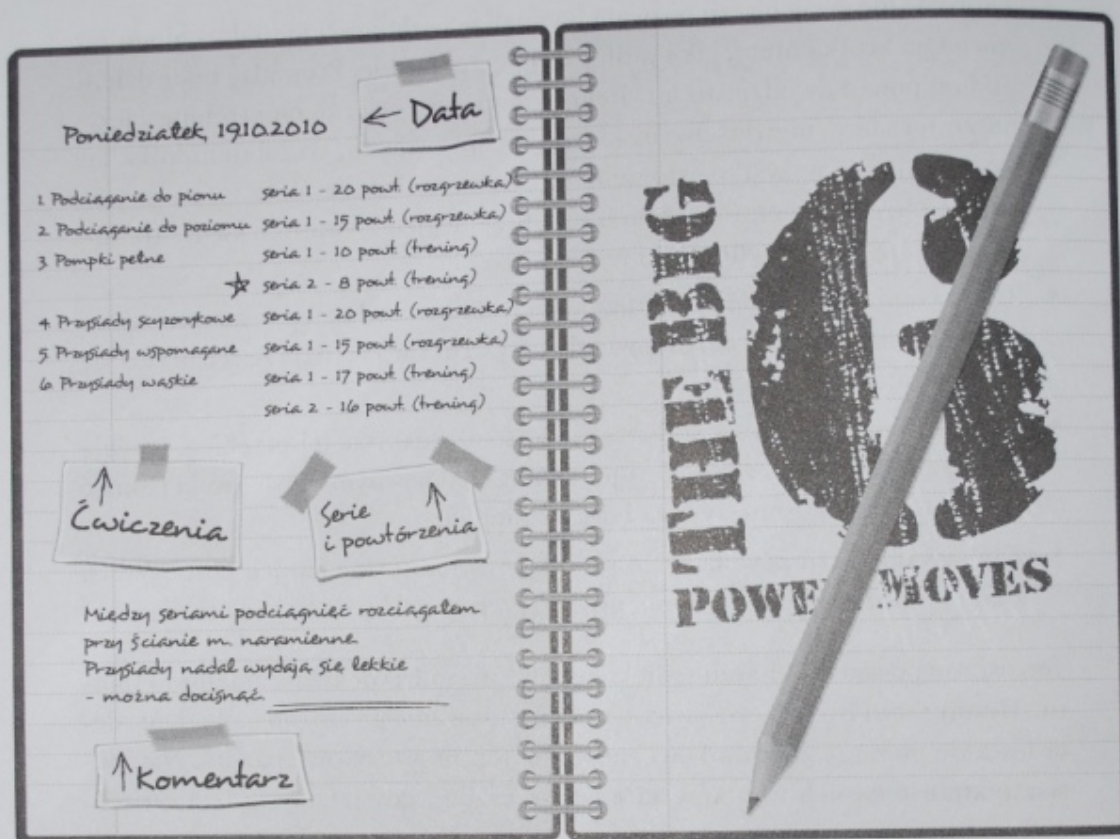 Poniedziałek, 19.10.2010
← Data
1. Podciąganie do pionu seria 1 - 20 powt. (rozgrzewka)
2. Podciąganie do poziomu seria 1 - 15 powt. (rozgrzewka)
3. Pompki pełne seria 1 - 10 powt. (trening)
☆ seria 2 - 8 powt. (trening)
4. Przysiady scyzorykowe seria 1 - 20 powt. (rozgrzewka)
5. Przysiady wspomagane seria 1 - 15 powt. (rozgrzewka)
6. Przysiady wąskie seria 1 - 17 powt. (trening)
seria 2 - 16 powt. (trening)
↑
Ćwiczenia
Serie ↑
i powtórzenia
Między seriami podciągnięć rozciągałem
przy ścianie m. naramienne.
Przysiady nadal wydają się lekkie
- można docisnąć.
↑ Komentarz
THE BIG
6
POWER MOVES